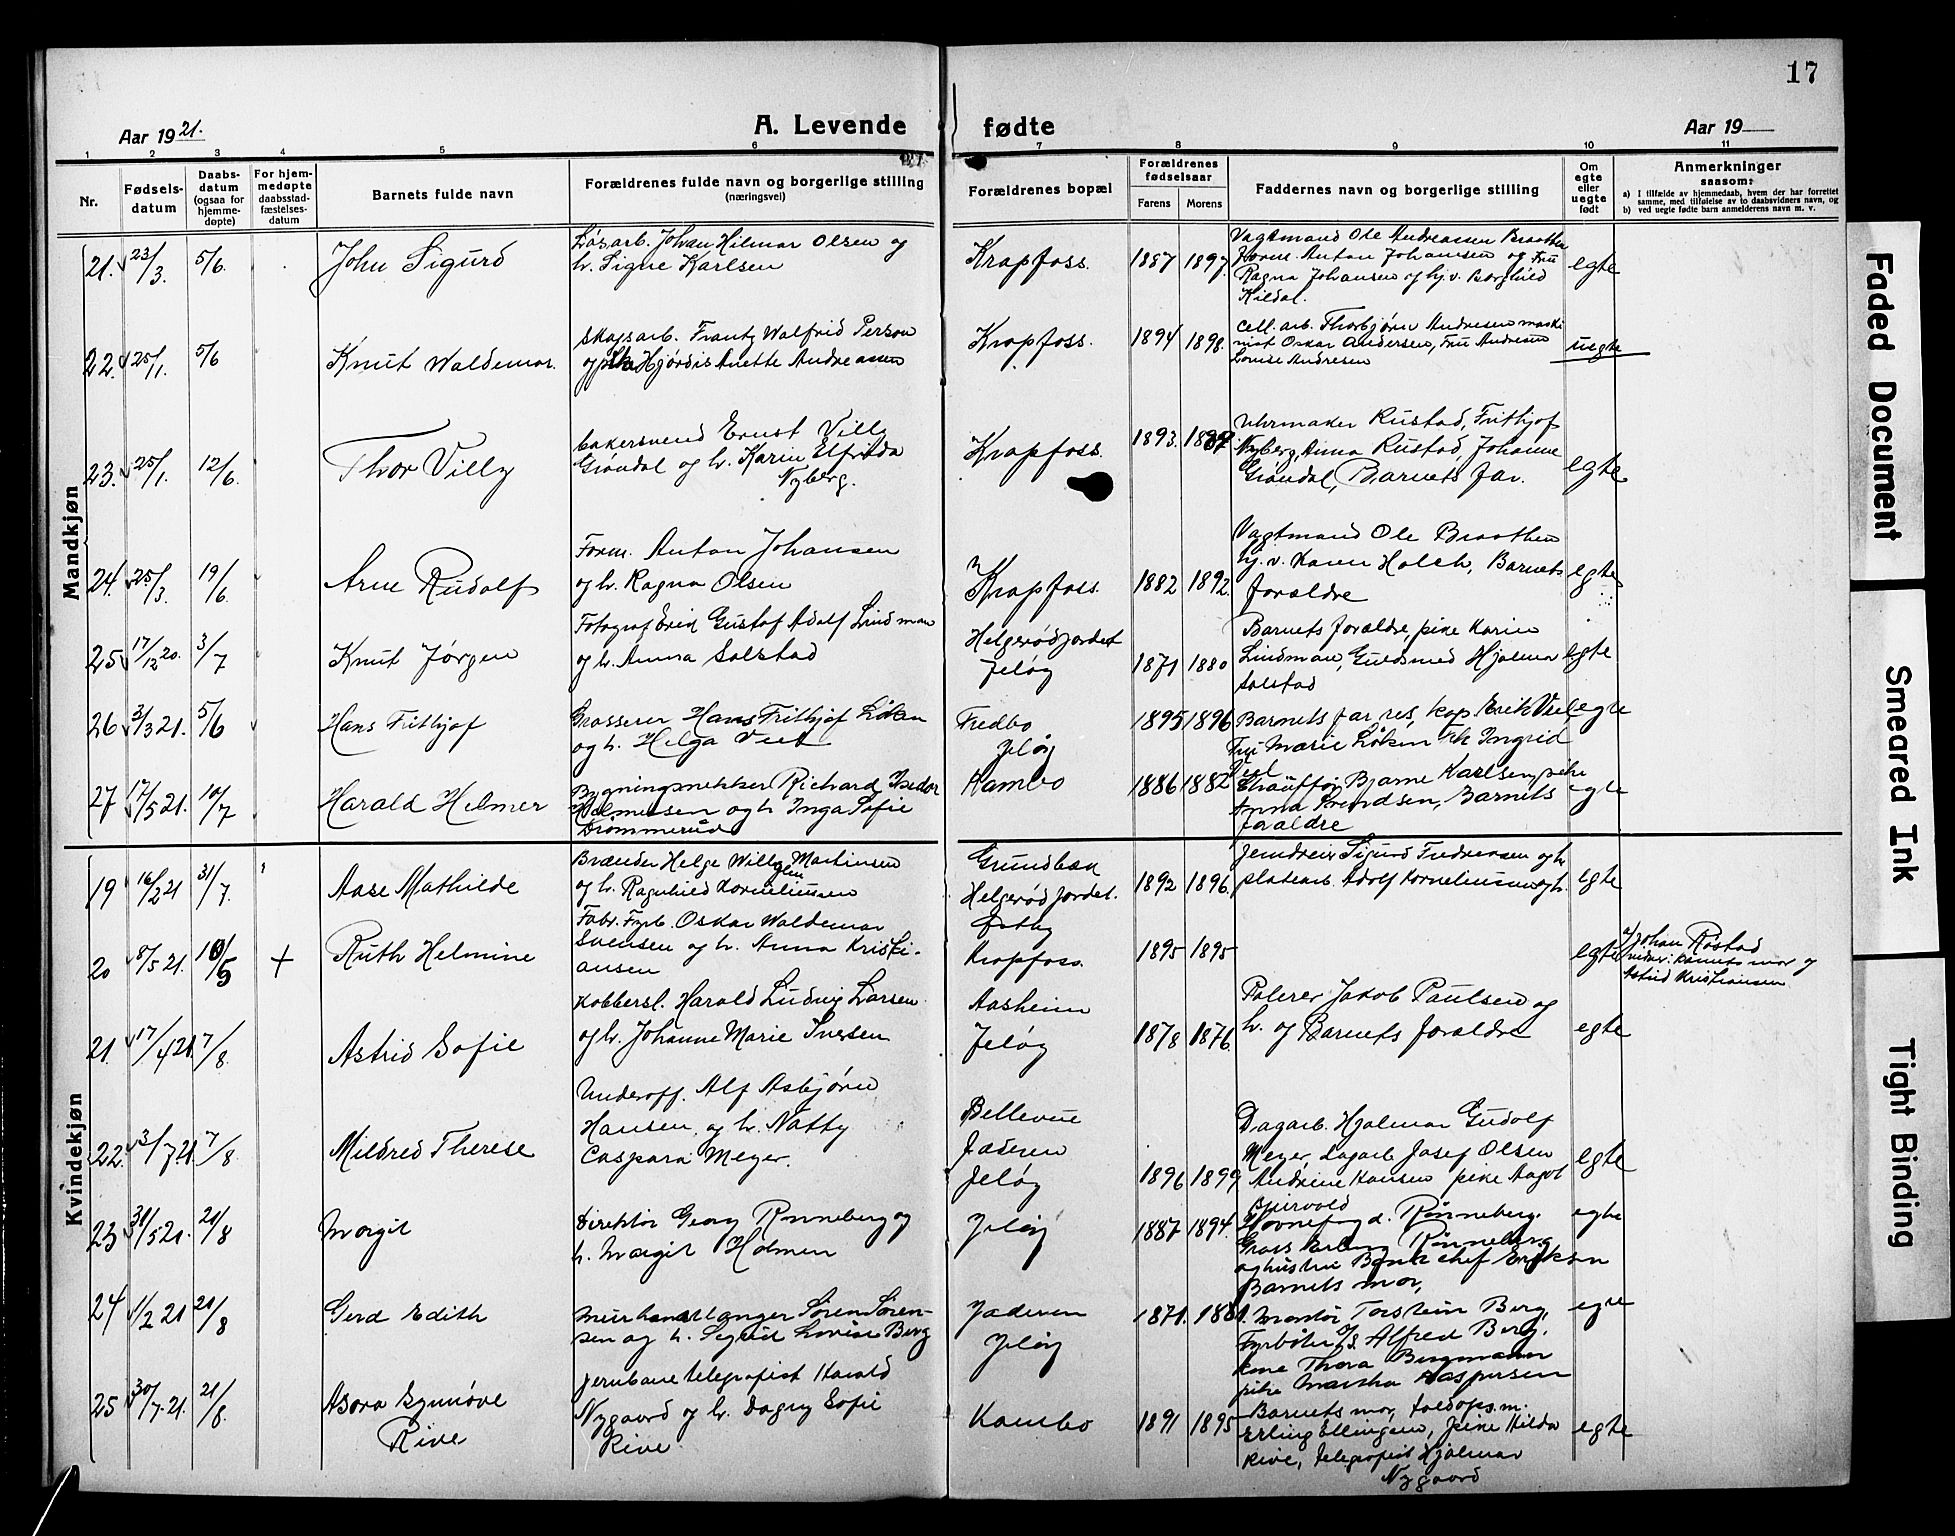 17
Aar 1921.
A. Levende fødte
Aar 19
1 2 3 4 5 6 7 8 9 10 11
Nr.
Fødsels-
datum
Daabs-
datum
(ogsaa for
hjemme-
døpte)
For hjem-
medøpte
daabsstad-
fæstelses-
datum
Barnets fulde navn
Forældrenes fulde navn og borgerlige stilling
(næringsvei)
Forældrenes bopæl
Forældrenes
fødselsaar
Farens Morens
Faddernes navn og borgerlige stilling
Om
egte
eller
uegte
født
Anmerkninger
saasom:
a) I tilfælde av hjemmedaab, hvem der har forrettet
samme, med tilføielse av to daabsvidners navn, og
b) ved uegte fødte barn anmelderens navn m. v.
Mandkjøn
21. 23/3. 5/6. John Sigurd
Løsarb. Johan Hilmar Olsen og
h. Signe Karlsen
Krapfoss. 1887 1897.
Vagtmand Ole Andreassen Braathen
Form. Anton Johansen og Fru
Ragna Johansen og hj.v. Borghild
Kildal.
egte
22. 25/1. 5/6 Knut Waldemar.
Skogsarb. Frantz Walfrid Person
og pike Hjørdis Anette Andreassen
Krapfoss. 1894 1898.
Cell. arb. Thorbjørn Andresen maski
nist Oskar Andersen, Fru Andresen
Louise Andresen
uegte
23. 25/1. 12/6. Thor Villy
bakersvend Ernst Villy
Grøndal og h. Karin Elfrida
Nyberg.
Krapfoss. 1893.
Uhrmaker Rustad, Frithjof
Nyberg, Anna Rustad, Johanne
Grøndal, Barnets far.
egte
24. 25/3. 19/6. Arne Rudolf
Form. Anton Johansen
og h. Ragna Olsen
Krapfoss. 1882 1892.
Vagtmand Ole Braathen
hj. v. Karen Holch, Barnets
forældre
egte
25 17/12 20. 3/7 Knut Jørgen
Fotograf Erik Gustaf Adolf Lindman
og h. Anna Solstad
Helgerødjordet
Jeløy
1871 1880
Barnets forældre, pike Karin
Lindman, Guldsmed Hjalmar
Solstad
egte
26 3/3 21. 5/6 Hans Frithjof
Grosserer Hans Frithjof Løken
og h. Helga Veel
Fredbo
Jeløy
1895 1896
Barnets far, res. kap. Erik Veel
Fru Marie Løken Frk Ingrid
Veel
egte
27 17/5 21. 10/7 Harald Helmer
Bygningssnekker Richard Isedor
Helmersen og h Inga Sofie
Drømmerud
Kambo 1886 1882
Chauffør Bjarne Karlsen, pike
Anna Svendsen, Barnets
forældre
egte
Kvindekjøn
19 16/2 21 31/7. Aase Mathilde
Brænder Helge Willy Martinsen
og h. Ragnhild Korneliussen
Grundbæk
Helgerød Jordet.
1892 1896.
Jerndreier Sigurd Fredrensen og h.
platearb. Adolf Korneliussen og h.
egte
20 8/5 21. 10/5 + Ruth Helmine
Fabr. Fyrb. Oskar Waldemar
Svensen og h. Anna Kristi-
ansen
Krapfoss. 1895 1895
egte
a/ Johan Røstad
vidner: Barnets mor og
Astrid Kristiansen
21. 17/4 21. 7/8. Astrid Sofie
Kobbersl. Harald Ludvig Larsen
og h. Johanne Marie Iversen
Aasheim
Jeløy
1878 1876.
Polerer Jakob Paulsen og
h. og Barnets forældre
egte
22. 3/7 21. 7/8. Mildred Therese
Underoff. Alf Asbjørn
Hansen, og h. Natty
Caspara Meyer.
Bellevue
Jaderen
Jeløy
1896 1899
Dagarb. Hjalmar Gudolf
Meyer, dagarb. Josef Olsen
Andrine Hansen pike Aagot
Bjervold
egte
23 31/5 21. 21/8 Margit
Direktør Georg Rønneberg og
h. Margit Holmen
Jeløy 1887 1894.
Hovnefogd. Rønneberg.
Gross Erling Rønneberg
og hustru Bankchef Eriksen
Barnets mor,
egte
24 1/2 21 21/8 Gerd Edith
Murhandtlanger Søren Søren-
sen og h. Sigrid Lovise Berg
Jaderen
Jeløy
1871. 1881.
Montør Torstein Berg,
Fyrbøter D/S Alfred Berg.
Kone Thora Bergmann
pike Martha Kaspersen
egte
25 30/7. 21. 21/8. Asora Synnøve
Rive
Jernbanetelegrafist Harald
Nygaard og h. Dagny Sofie
Rive
Kambo 1891 1895
Barnets mor, toldops.m.
Erling Ellingsen, pike Hilda
Rive, telegrafist Hjalmar
Nygaard
egte
Faded Document
Smeared Ink
Tight Binding